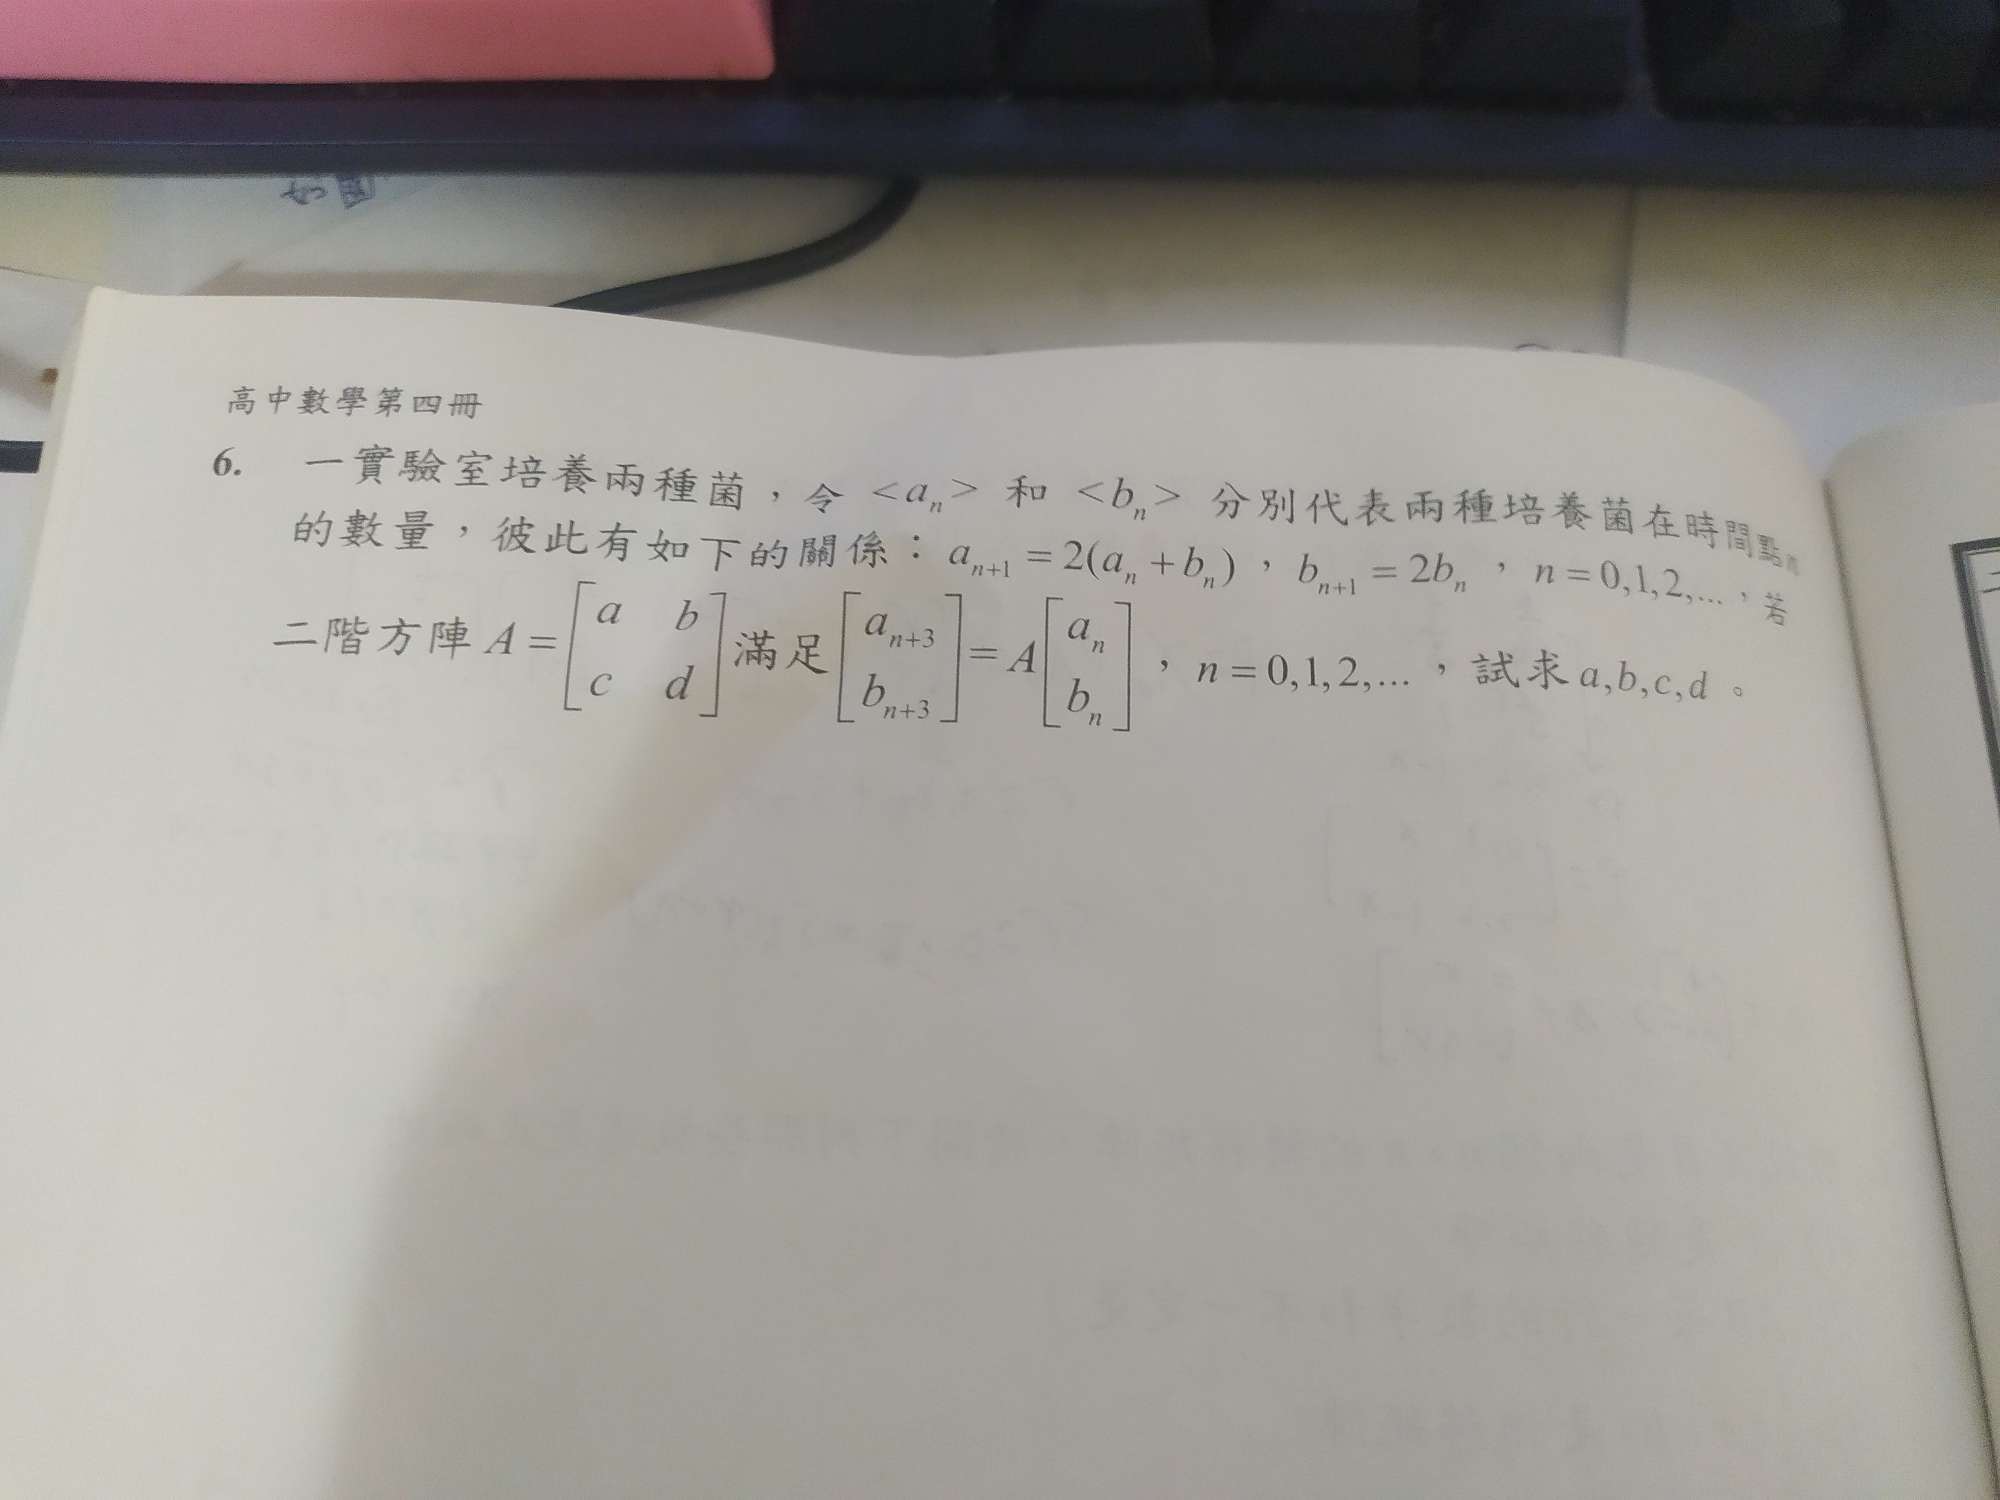 高中數學第四冊
6. 一實驗室培養兩種菌，令 <aₙ> 和 <bₙ> 分別代表兩種培養菌在時間點n
的數量，彼此有如下的關係：aₙ₊₁ = 2(aₙ + bₙ)，bₙ₊₁ = 2bₙ，n = 0,1,2,...，若
二階方陣 A = [a b; c d] 滿足 [aₙ₊₃; bₙ₊₃] = A [aₙ; bₙ]，n = 0,1,2,...，試求 a,b,c,d。